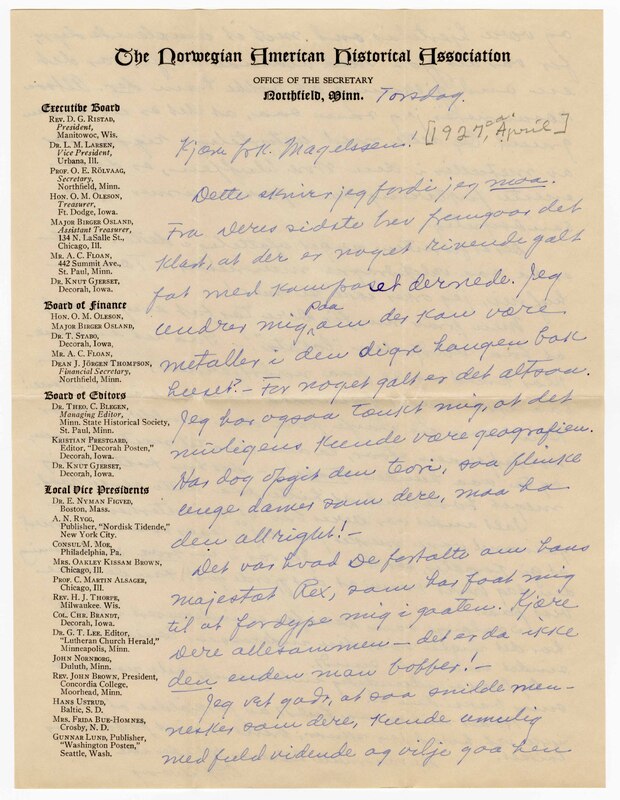 The Norwegian American Historical Association
OFFICE OF THE SECRETARY
Northfield, Minn.
Torsdag.
[1927, April]
Executive Board
REV. D. G. RISTAD,
President,
Manitowoc, Wis.
DR. L. M. LARSEN,
Vice President,
Urbana, Ill.
PROF. O. E. RÖLVAAG,
Secretary,
Northfield, Minn.
HON. O. M. OLESON,
Treasurer,
Ft. Dodge, Iowa.
MAJOR BIRGER OSLAND,
Assistant Treasurer,
134 N. LaSalle St.,
Chicago, Ill.
MR. A. C. FLOAN,
442 Summit Ave.,
St. Paul, Minn.
DR. KNUT GJERSET,
Decorah, Iowa.
Board of Finance
HON. O. M. OLESON,
MAJOR BIRGER OSLAND,
DR. T. STABO,
Decorah, Iowa.
MR. A. C. FLOAN,
DEAN J. JÖRGEN THOMPSON,
Financial Secretary,
Northfield, Minn.
Board of Editors
DR. THEO. C. BLEGEN,
Managing Editor,
Minn. State Historical Society,
St. Paul, Minn.
KRISTIAN PRESTGARD,
Editor, "Decorah Posten,"
Decorah, Iowa.
DR. KNUT GJERSET,
Decorah, Iowa.
Local Vice Presidents
DR. E. NYMAN FIGVED,
Boston, Mass.
A. N. RYGG,
Publisher, "Nordisk Tidende,"
New York City.
CONSUL M. MOE,
Philadelphia, Pa.
MRS. OAKLEY KISSAM BROWN,
Chicago, Ill.
PROF. C. MARTIN ALSAGER,
Chicago, Ill.
REV. H. J. THORPE,
Milwaukee. Wis.
COL. CHR. BRANDT,
Decorah, Iowa.
DR. G. T. LEE, Editor,
"Lutheran Church Herald,"
Minneapolis, Minn.
JOHN NORNBORG,
Duluth, Minn.
REV. JOHN BROWN, President,
Concordia College,
Moorhead, Minn.
HANS USTRUD,
Baltic, S. D.
MRS. FRIDA BUE-HOMNES,
Crosby, N. D.
GUNNAR LUND, Publisher,
"Washington Posten,"
Seattle, Wash.
Kjære frk. Magelssen!
Dette skriver jeg fordi jeg maa.
Fra Deres sidste brev fremgaar det
klart, at der er noget rivende galt
fat med kompasset dernede. Jeg
undrer mig paa om der kan være
metaller i den digre haugen bak
huset? – For noget galt er det altsaa.
Jeg har ogsaa tænkt mig, at det
muligens kunde være geografien.
Har dog opgit den teori, saa flinke
unge damer som dere, maa ha
den allright! –
Det var hvad De fortalte om hans
majestæt Rex, som har faat mig
til at fordype mig i gaaten. Kjære
Dere allesammen – det er da ikke
den enden man boffer! –
Jeg vet godt, at saa snilde men-
nesker som dere, kunde umulig
med fuld vidende og vilje gaa hen